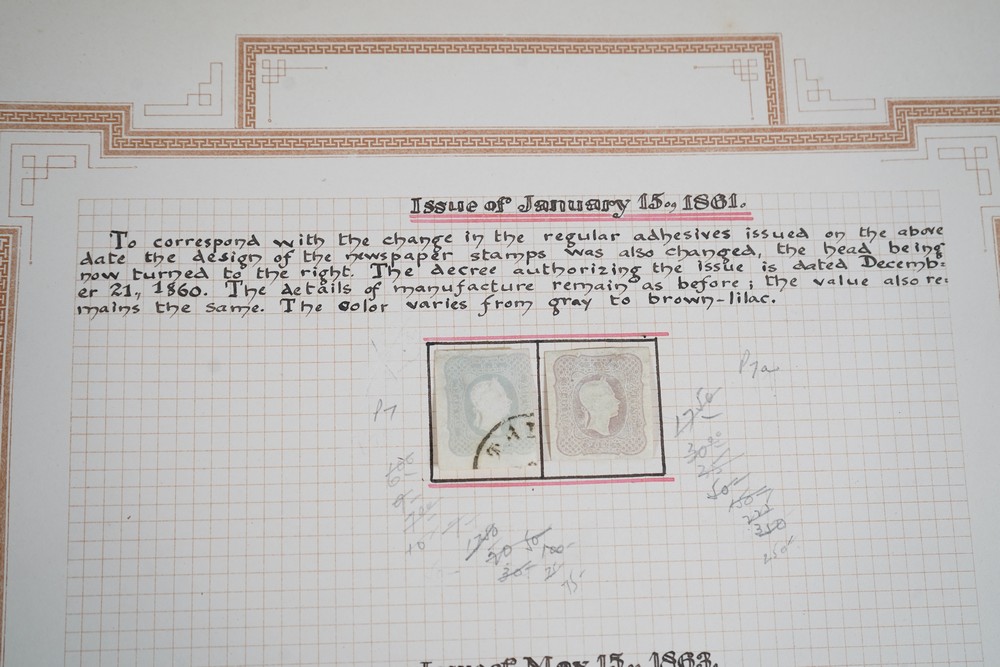 Issue of January 15., 1861.
To correspond with the change in the regular adhesives issued on the above
date the design of the newspaper stamps was also changed, the head being
now turned to the right. The decree authorizing the issue is dated Decemb-
er 21., 1860. The details of manufacture remain as before; the value also re-
mains the same. The color varies from gray to brown-lilac.
P7a
P7
1750
30
50
225
350
10
1750
20
50
100
30
75
Issue of Nov 15., 1863.